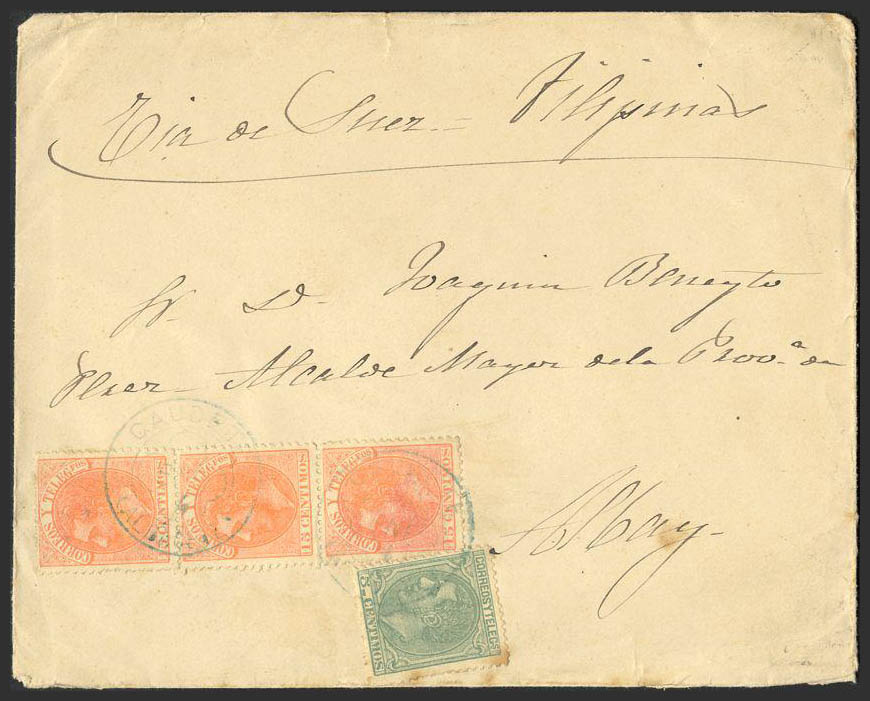 Via de Suez = Filipinas
Sr. D. Joaquin Beneyto
Alcalde Mayor de la Prov.ª de
Albay.
CORREOS Y TELEGFOS
15 CENTIMOS
CORREOS Y TELEGFOS
15 CENTIMOS
CORREOS Y TELEGFOS
15 CENTIMOS
CORREOS Y TELEGS
5 CENTIMOS